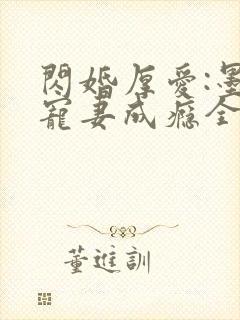 閃婚厚愛:墨
寵妻成癮全
董進訓